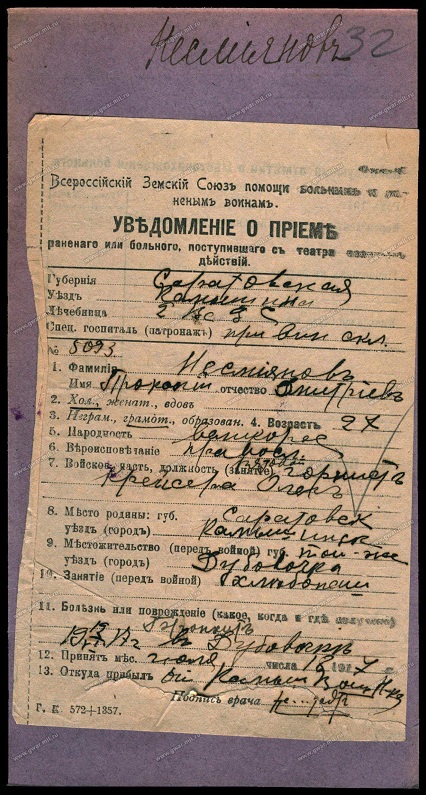 Несмѣяновъ 32
Всероссійскій Земскій Союзъ помощи больнымъ и ра-
ненымъ воинамъ.
УВѢДОМЛЕНІЕ О ПРІЕМѢ
раненаго или больного, поступившаго съ театра военныхъ
дѣйствій.
Губернія Саратовская
Уѣздъ
Лѣчебница 2
Спец. госпиталь (патронажъ) при вин скл.
№ 5093
1. Фамилія Несміяновъ
Имя Прокопій отчество Дмитріевъ
2. Хол., женат., вдовъ
3. Неграм., грамотн., образован. 4. Возрастъ 27
5. Народность великорос
6. Вѣроисповѣданіе правосл
7. Войсков. часть, должность (занятіе)
крейсера Олегъ
8. Мѣсто родины: губ. Саратовск
уѣздъ (городъ) Камышинск
9. Мѣстожительство (передъ войной) губ. той-же
уѣздъ (городъ) Дубовочка
10. Занятіе (передъ войной) хлѣбопаш
11. Болѣзнь или поврежденіе (какое, когда и гдѣ получено)
12. Принятъ мѣс. іюля числа 16 1917 г.
13. Откуда прибылъ от Камыш
Подпись врача
Г. К. 572—1357.
www.gwar.mil.ru